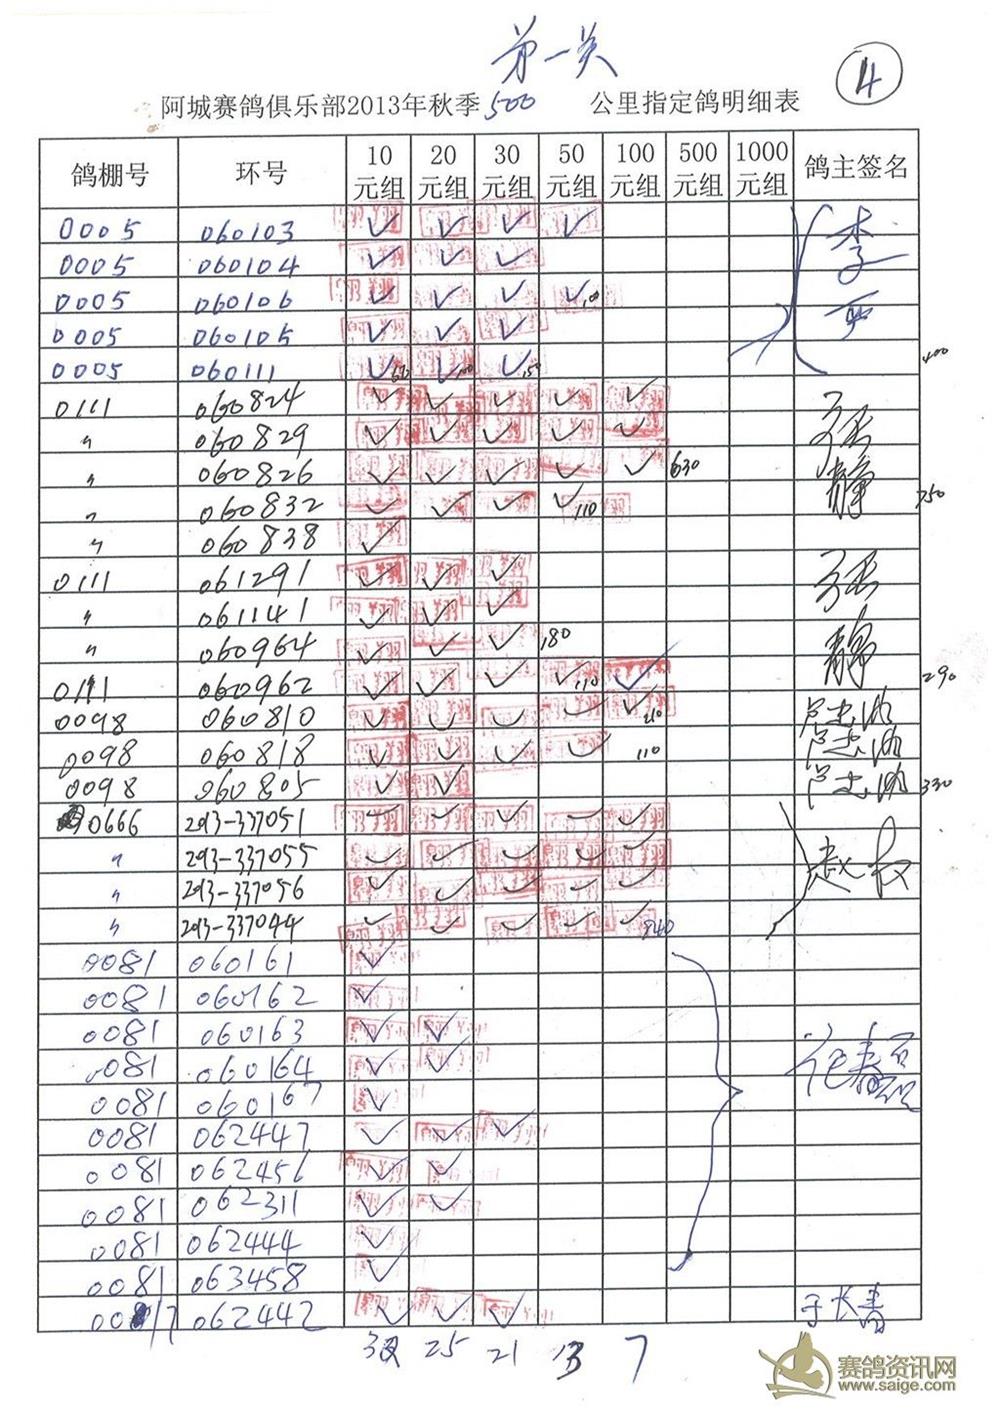 第一关
4
阿城赛鸽俱乐部2013年秋季500 公里指定鸽明细表
鸽棚号 环号 10元组 20元组 30元组 50元组 100元组 500元组 1000元组 鸽主签名
0005 060103 ✓ ✓ ✓ ✓ 李
0005 060104 ✓ ✓ ✓
0005 060106 ✓ ✓ ✓ ✓
0005 060105 ✓ ✓ ✓
0005 060111 ✓ ✓ ✓ 400
0111 060824 ✓ ✓ ✓ ✓ ✓ 张静
〃 060829 ✓ ✓ ✓ ✓ ✓
〃 060826 ✓ ✓ ✓ ✓ ✓ 630
〃 060832 ✓ ✓ ✓ ✓110 750
〃 060838 ✓
0111 061291 ✓ ✓ ✓ 张静
〃 061141 ✓ ✓ ✓
〃 060964 ✓ ✓ ✓ 180
0111 060962 ✓ ✓ ✓ ✓110 ✓ 290
0098 060810 ✓ ✓ ✓ ✓ ✓210
0098 060818 ✓ ✓ ✓ ✓ 110
0098 060805 ✓ ✓ 330
0666 2013-337051 ✓ ✓ ✓ ✓ ✓
〃 2013-337055 ✓ ✓ ✓ ✓ ✓ 赵权
〃 2013-337056 ✓ ✓ ✓ ✓ ✓
〃 2013-337044 ✓ ✓ ✓ ✓ ✓840
0081 060161 ✓
0081 060162 ✓
0081 060163 ✓ ✓
0081 060164 ✓ ✓
0081 060167 ✓
0081 062447 ✓ ✓ ✓
0081 062456 ✓ ✓
0081 062311 ✓ ✓
0081 062444 ✓
0081 063458 ✓
0017 062442 ✓ ✓ ✓ 于长春
25 21 13 7
赛鸽资讯网
www.saige.com